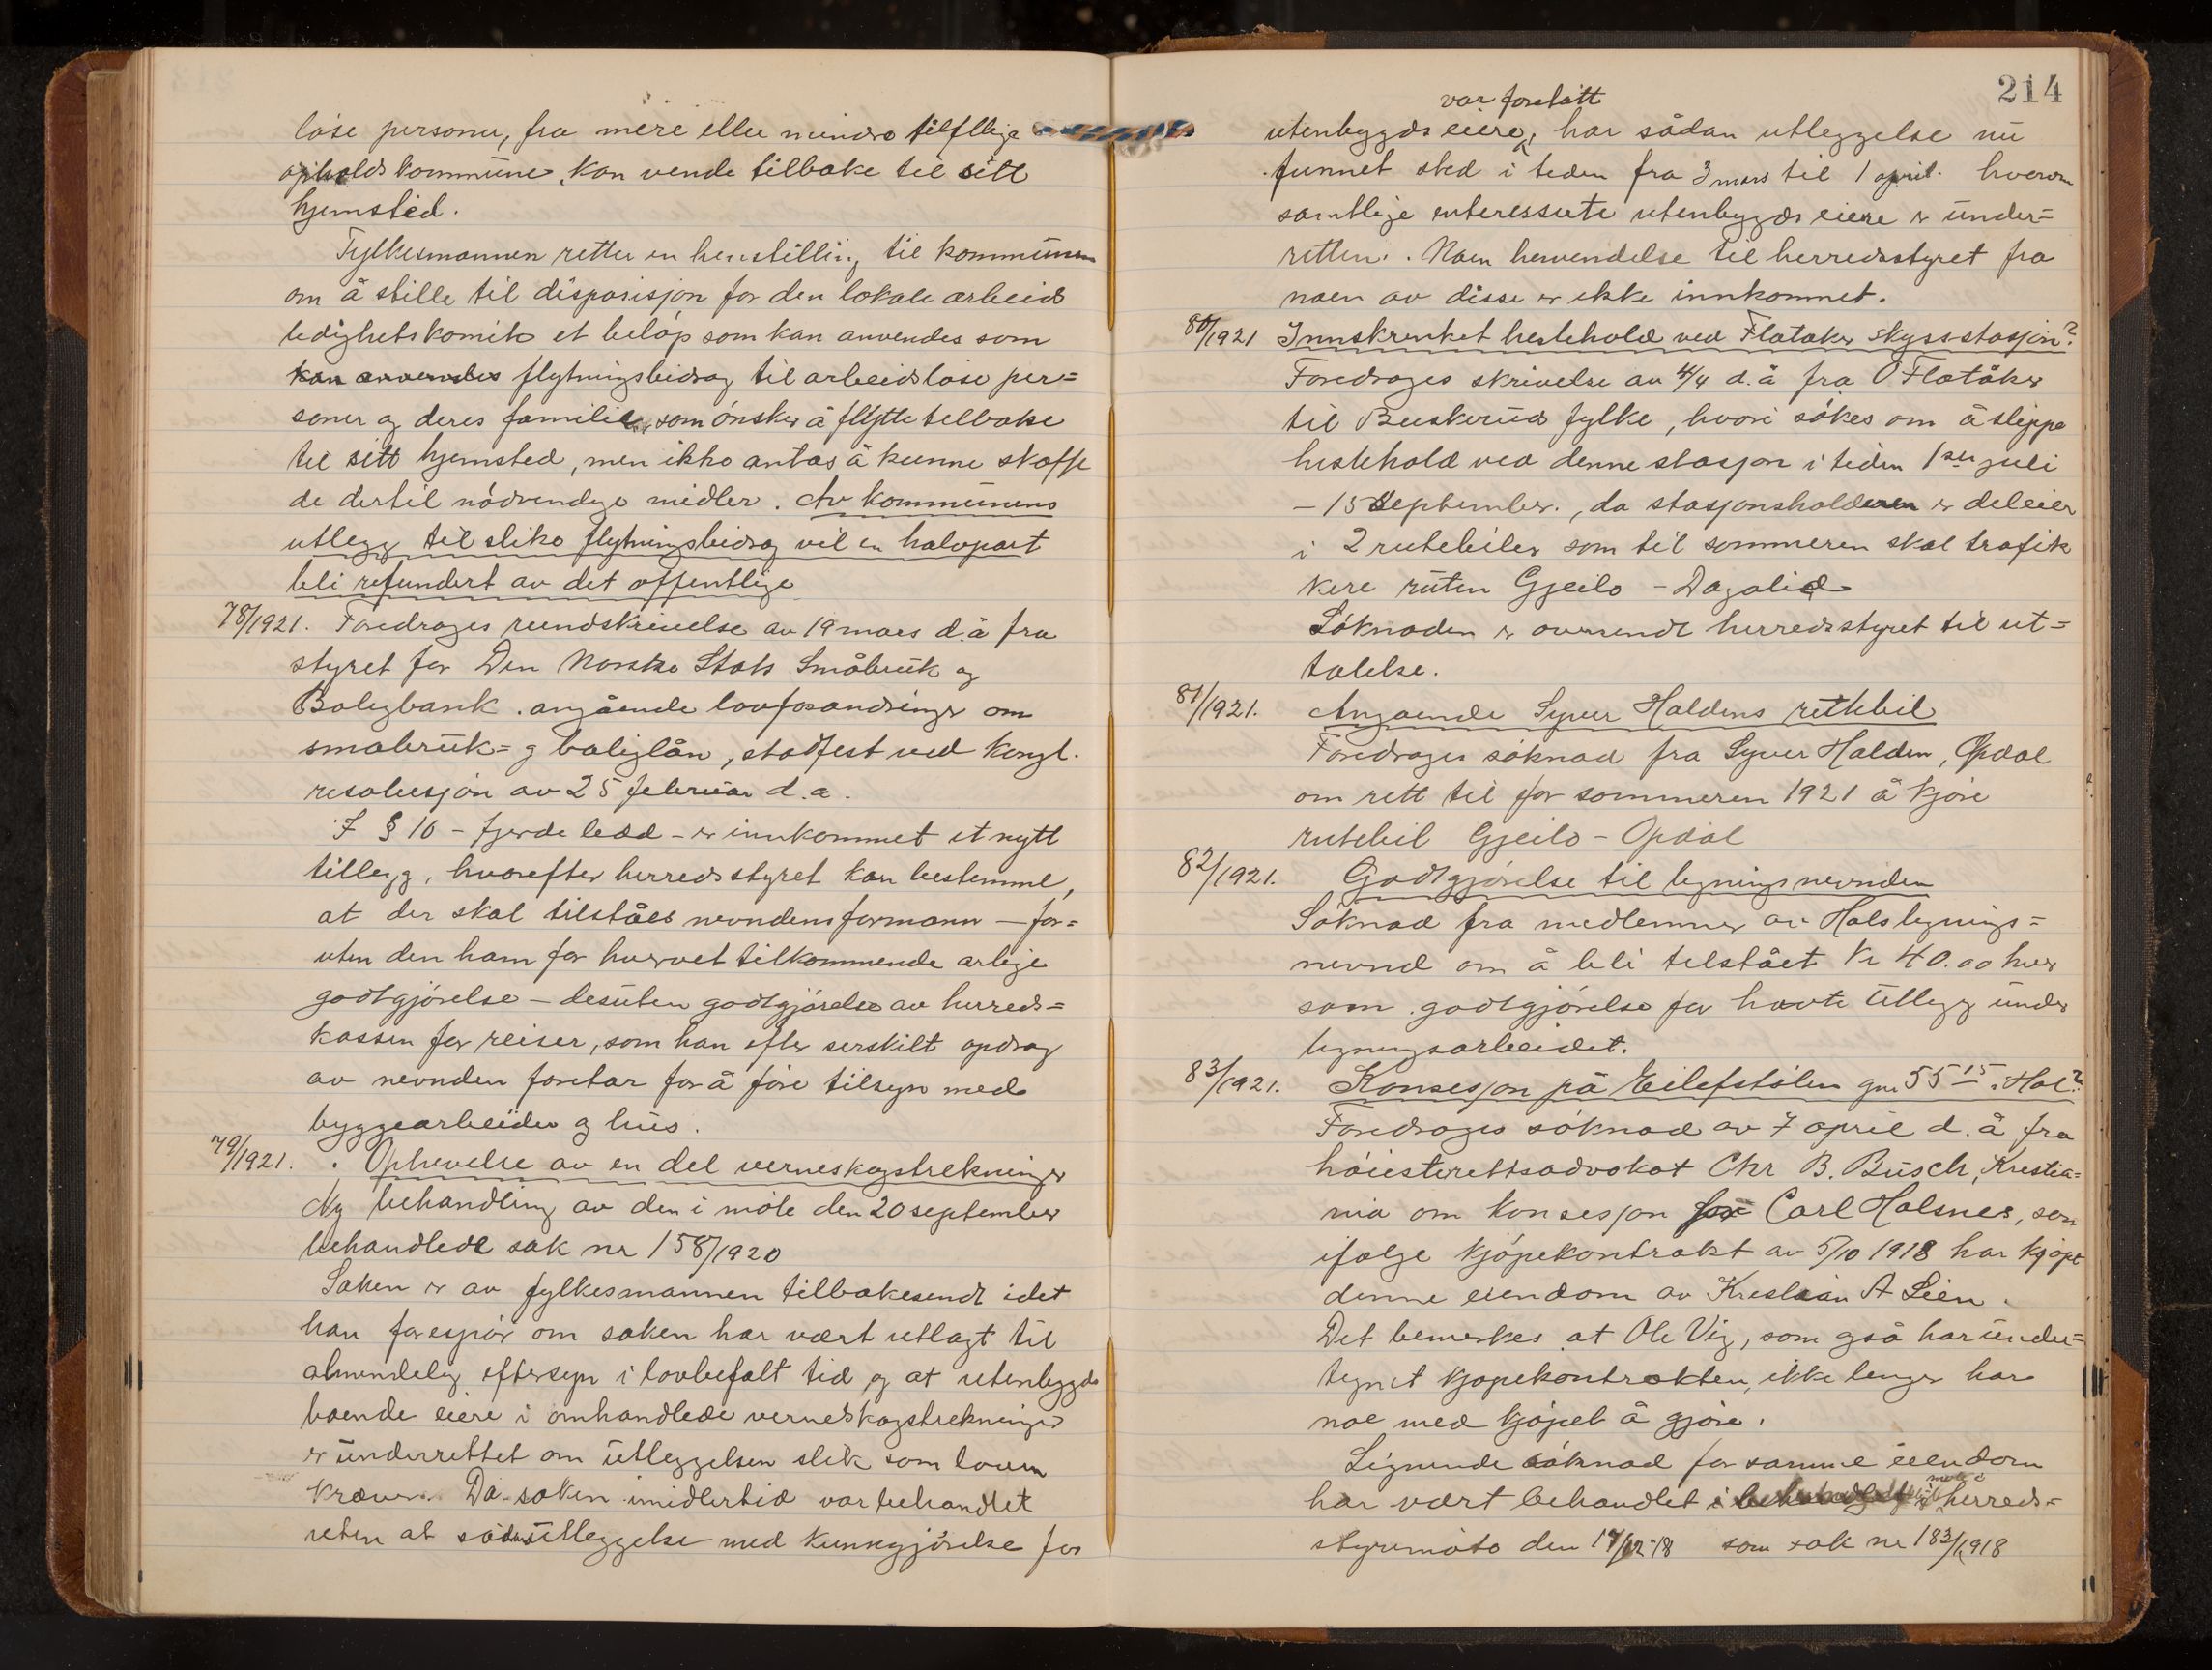 løse personer, fra mere eller mindre tilfellige
opholdskommune, kan vende tilbake til sitt
hjemsted.
Fylkesmannen retter en henstilling til kommunen
om å stille til disposisjon for den lokale arbeids
ledighetskomite et beløp som kan anvendes som
kan anvendes flytningsbidrag til arbeidsløse per=
soner og deres familie, som ønsker å flytte tilbake
til sitt hjemsted, men ikke antas å kunne skaffe
de dertil nødvendige midler. Av kommunens
utlegg til slike flytningsbidrag vil en halvpart
bli refundert av det offentlige
78/1921. Foredrages rundskrivelse av 19 mars d.å fra
styret for Den Norske Stats Småbruk og
Boligbank. angående lovforandringer om
småbruk= og boliglån, stadfest ved kongl.
resolusjon av 25 februar d.a.
I § 16 - fjerde ledd - er innkommet et nytt
tillegg, hvorefter herredsstyret kan bestemme,
at der skal tilståes nevndens formann — for=
uten den ham for hvervet tilkommende årlige
godtgjørelse — desuten godtgjørelse av herreds=
kassen for reiser, som han efter serskilt opdrag
av nevnden foretar for å føre tilsyn med
byggearbeider og hus.
79/1921. Ophevelse av en del verneskogstrekninger
Ny behandling av den i møte den 20 september
behandlede sak nr 158/1920
Saken er av fylkesmannen tilbakesendt idet
han forespør om saken har vært utlagt til
almindelig eftersyn i lovbefalt tid og at utenbygds
boende eiere i omhandlede verneskogstrekninger
er underrettet om utleggelsen slik som loven
krever. Da saken imidlertid var behandlet
uten at sådan utleggelse med kunngjørelse for
214
var foretatt
utenbygds eiere, har sådan utleggelse nu
funnet sted i tiden fra 3 mars til 1 april. hvorom
samtlige interesserte utenbygds eiere er under=
rettet. Noen henvendelse til herredsstyret fra
noen av disse er ikke innkommet.
80/1921 Innskrenket hestehold ved Flatåker skysstasjon?
Foredrages skrivelse av 4/4 d.å fra O Flatåker
til Buskerud fylke, hvori søkes om å sleppe
hestehold ved denne stasjon i tiden 1ste juli
- 15 September., da stasjonsholderen er deleier
i 2 rutebiler som til sommeren skal trafik
kere ruten Gjeilo - Dagalid
Søknaden er oversendt herredsstyret til ut=
talelse.
81/1921. Angaende Syver Haldens rutebil
Foredrages søknad fra Syver Halden, Opdal
om rett til for sommeren 1921 å kjøre
rutebil Gjeilo - Opdal
82/1921. Godtgjørelse til ligningsnevnden
Søknad fra medlemmer av Hols lignings=
nevnd om å bli tilstået kr 40.00 hver
som godtgjørelse for havte utlegg under
ligningsarbeidet.
83/1921. Konsesjon på Eilefstølen gnr 55 15 i Hol?
Foredrages søknad av 7 april d.å fra
høiesterettsadvokat Chr B. Busch, Kristia=
nia om konsesjon for Carl Holsnes, som
ifølge kjøpekontrakt av 5/10 1918 har kjøpt
denne eiendom av Kristian A Lien.
Det bemerkes at Ole Vig, som også har under=
tegnet kjøpekontrakten, ikke lenger har
noe med kjøpet å gjøre.
Lignende søknad for samme eiendom
har vært behandlet i herreds=
styremøte den 17/12-18 som sak nr 183/1918